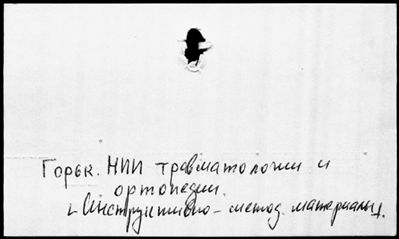 Горьк. НИИ травматологии и
ортопедии.
[Инструктивно-метод. материалы].